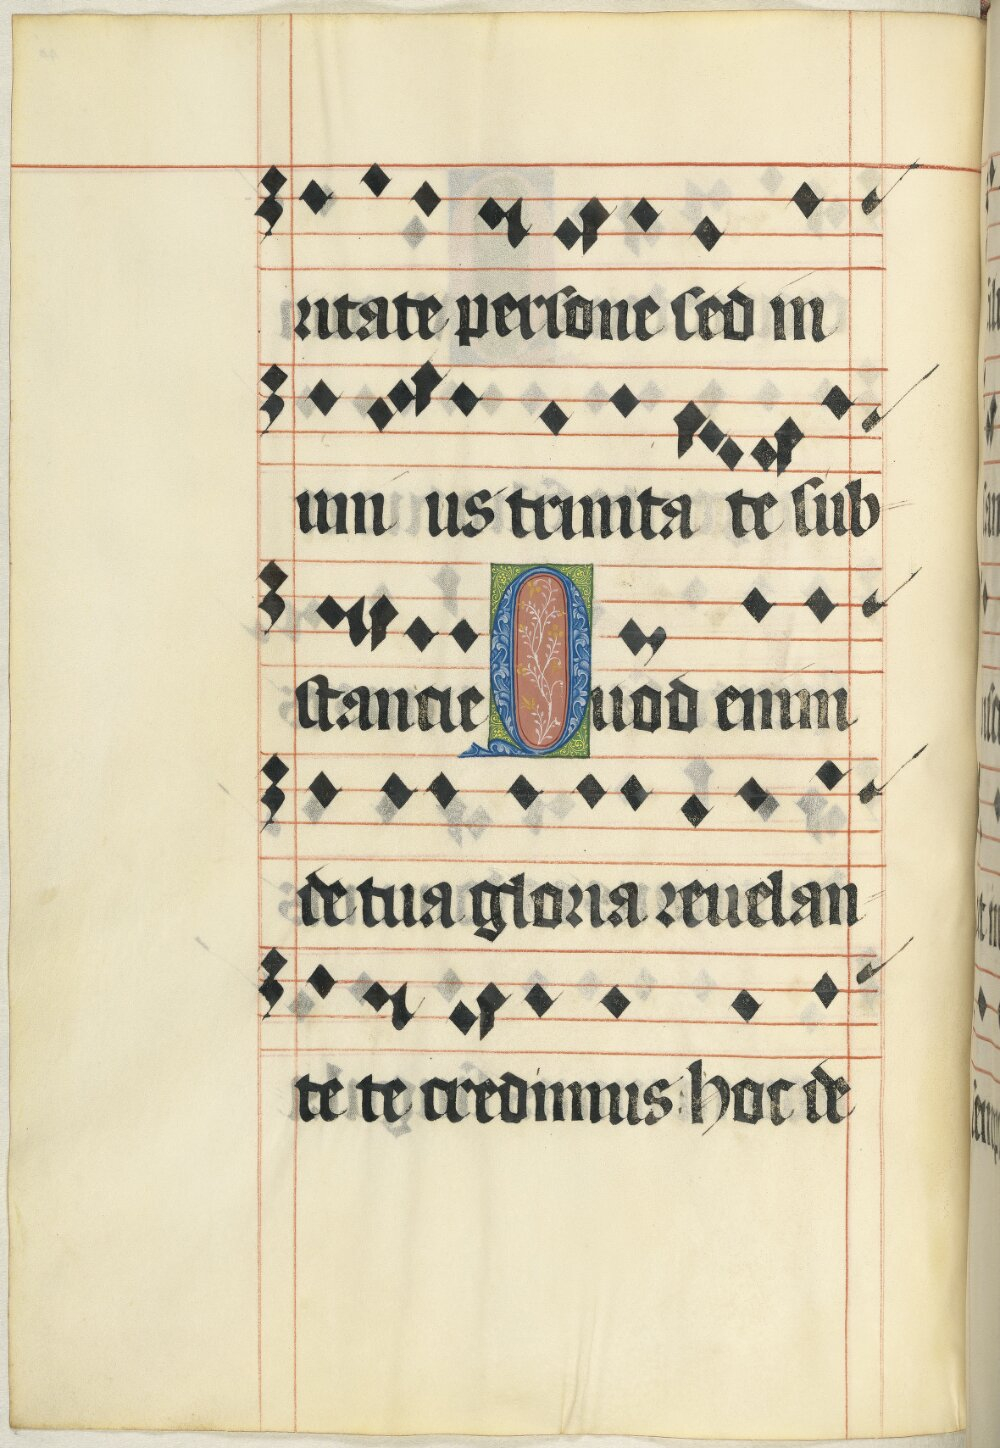 ritate persone sed in
uni us trinita te sub
stancie Quod enim
de tua gloria reuelan
te te credimus hoc de